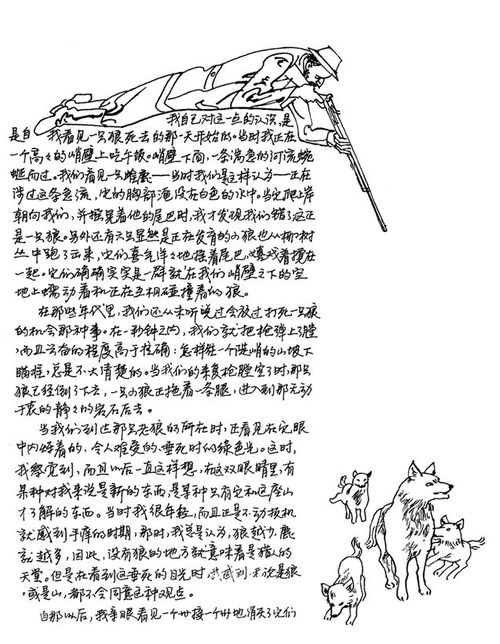 我自己对这一点的认识，是
是自 我看见一只狼死去的那一天开始的。当时我正在
一个高々的峭壁上吃午饭。峭壁下面，一条湍急的河流蜿
蜒而过。我们看见一只雌鹿——当时我们是这样认为——正在
涉过这条急流，它的胸部淹没在白色的水中。当它爬上岸
朝向我们，并摇晃着他的尾巴时，我才发现我们错了这正
是一只狼。另外还有六只显然是正在发育的小狼也从柳树
丛中跑了出来，它们喜气洋々地摇着尾巴，嬉戏着搅在
一起。它们确确实实是一群就在我们峭壁之下的空
地上蠕动着和正在互相碰撞着的狼。
在那些年代里，我们还从未听说过会放过打死一只狼
的机会那种事。在一秒钟之内，我们就把枪弹上了膛
，而且兴奋的程度高于准确：怎样往一个陡峭的山坡下
瞄准，总是不大清楚的。当我们的来复枪膛空了时，那只
狼已经倒了下去，一只小狼正拖着一条腿，进入到那无动
于衷的静々的岩石后去。
当我们到达那只老狼的所在时，正看见在它眼
中闪烁着的、令人难受的、垂死时的绿色光。这时，
我察觉到，而且以后一直这样想，在这双眼睛里，有
某种对我来说是新的东西，是某种只有它和这座山
才了解的东西。当时我很年轻，而且正是不动扳机
就感到手痒的时期，那时，我总是认为，狼越少，鹿
就越多，因此，没有狼的地方就意味着是猎人的
天堂。但是在看到这垂死的目光时，我感到，无论是狼
，或是山，都不会同意这种观点。
自那以后，我亲眼看见一个州接一个州地消灭了它们